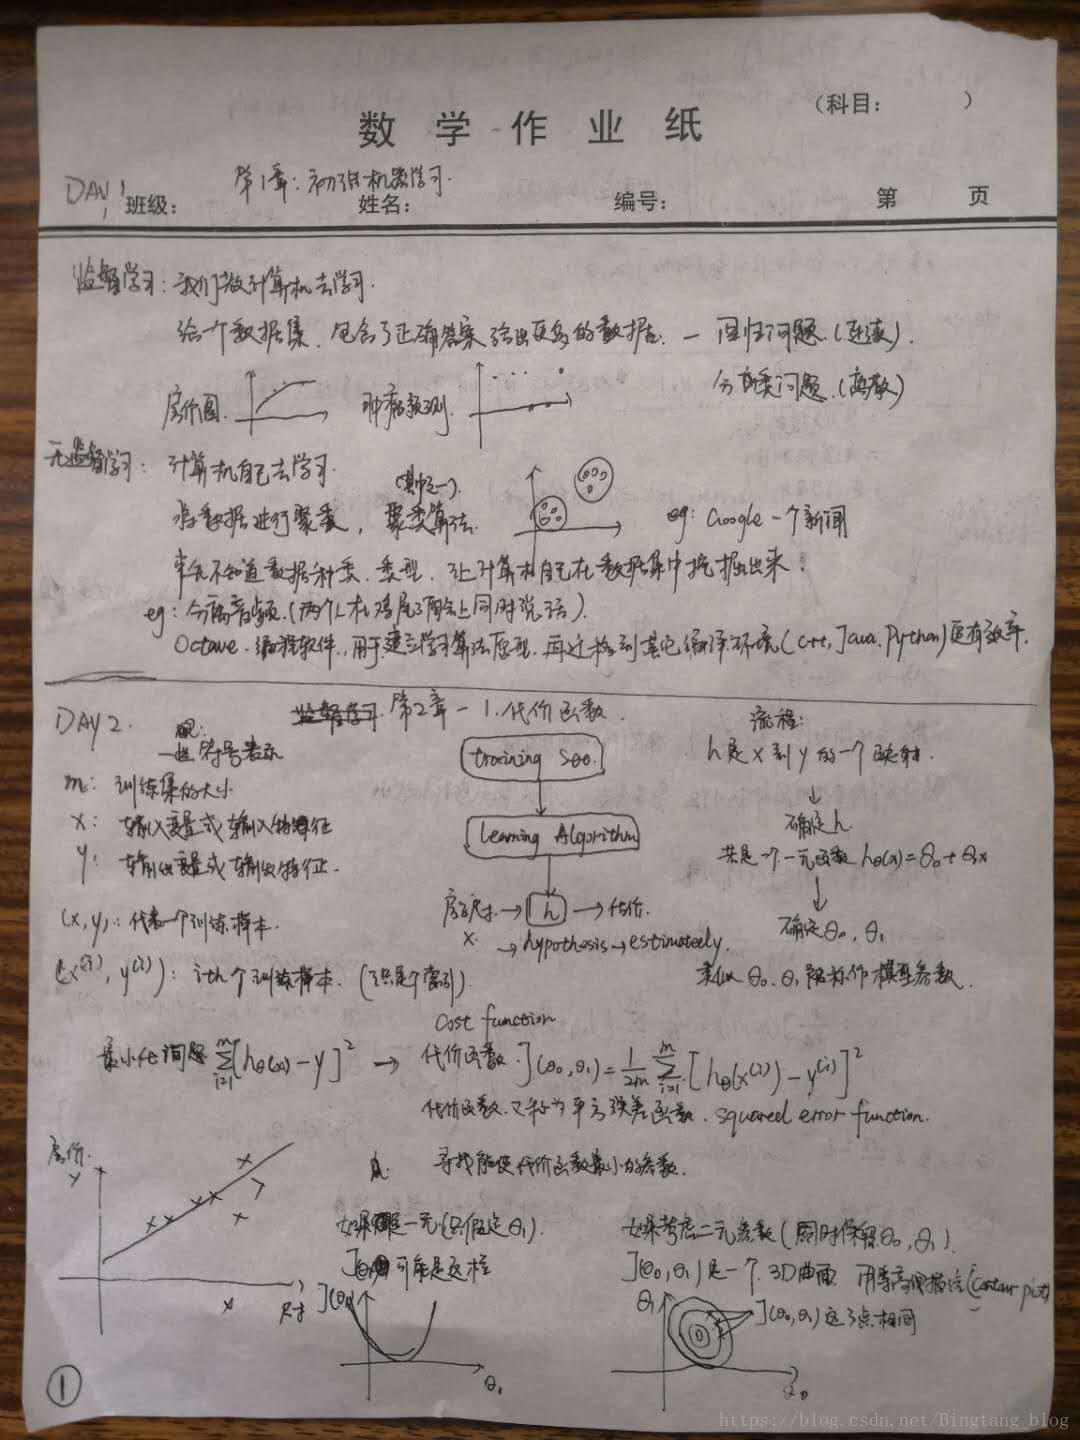 （科目：　　　）
数 学 作 业 纸
DAY 1 第1章：初识机器学习.
班级：　姓名：　编号：　第　页
监督学习：我们教计算机去学习.
给一个数据集，包含了正确答案，给出更多的数据. — 回归问题.(连续).
房价图. 肿瘤预测. 分离类问题.(离散)
无监督学习：计算机自己去学习.
(其中之一).
将数据进行聚类，聚类算法. eg: Google一个新闻
事先不知道数据种类、类型，让计算机自己在数据集中挖掘出来.
eg: 分离音频.(两个人在鸡尾酒会上同时说话).
Octave.编程软件,用于建立学习算法原型.再迁移到其它编译环境(C++, Java, Python)更有效率.
DAY 2. 第2章 - 1.代价函数.
一些符号表示
m: 训练集的大小
x: 输入变量或输入特征
y: 输出变量或输出特征.
(x, y): 代表一个训练样本.
(x⁽ⁱ⁾, y⁽ⁱ⁾): i th 个训练样本. (i只是个索引).
training set.
Learning Algorithm
房子尺寸. → h → 代价.
x. → hypothesis → estimately.
流程:
h是x到y的一个映射.
↓
确定h.
若是一个一元函数 hθ(x) = θ₀ + θ₁x
↓
确定θ₀, θ₁
类似 θ₀、θ₁ 被称作模型参数.
cost function
最小化问题 Σᵢ₌₁ᵐ [hθ(x) - y]² → 代价函数. J(θ₀, θ₁) = 1/2m Σᵢ₌₁ᵐ [hθ(x⁽ⁱ⁾) - y⁽ⁱ⁾]²
代价函数.又称为平方误差函数. squared error function.
寻找能使代价函数最小的参数.
房价.
y
尺寸
x
如果是一元(只假定θ₁).
J(θ₁)可能是这样
J(θ₁)
θ₁
如果考虑二元参数(同时保留θ₀, θ₁).
J(θ₀, θ₁)是一个3D曲面 用等高线描绘(contour plot)
θ₁
J(θ₀, θ₁)这3点相同
θ₀
①
https://blog.csdn.net/Bingtang_blog